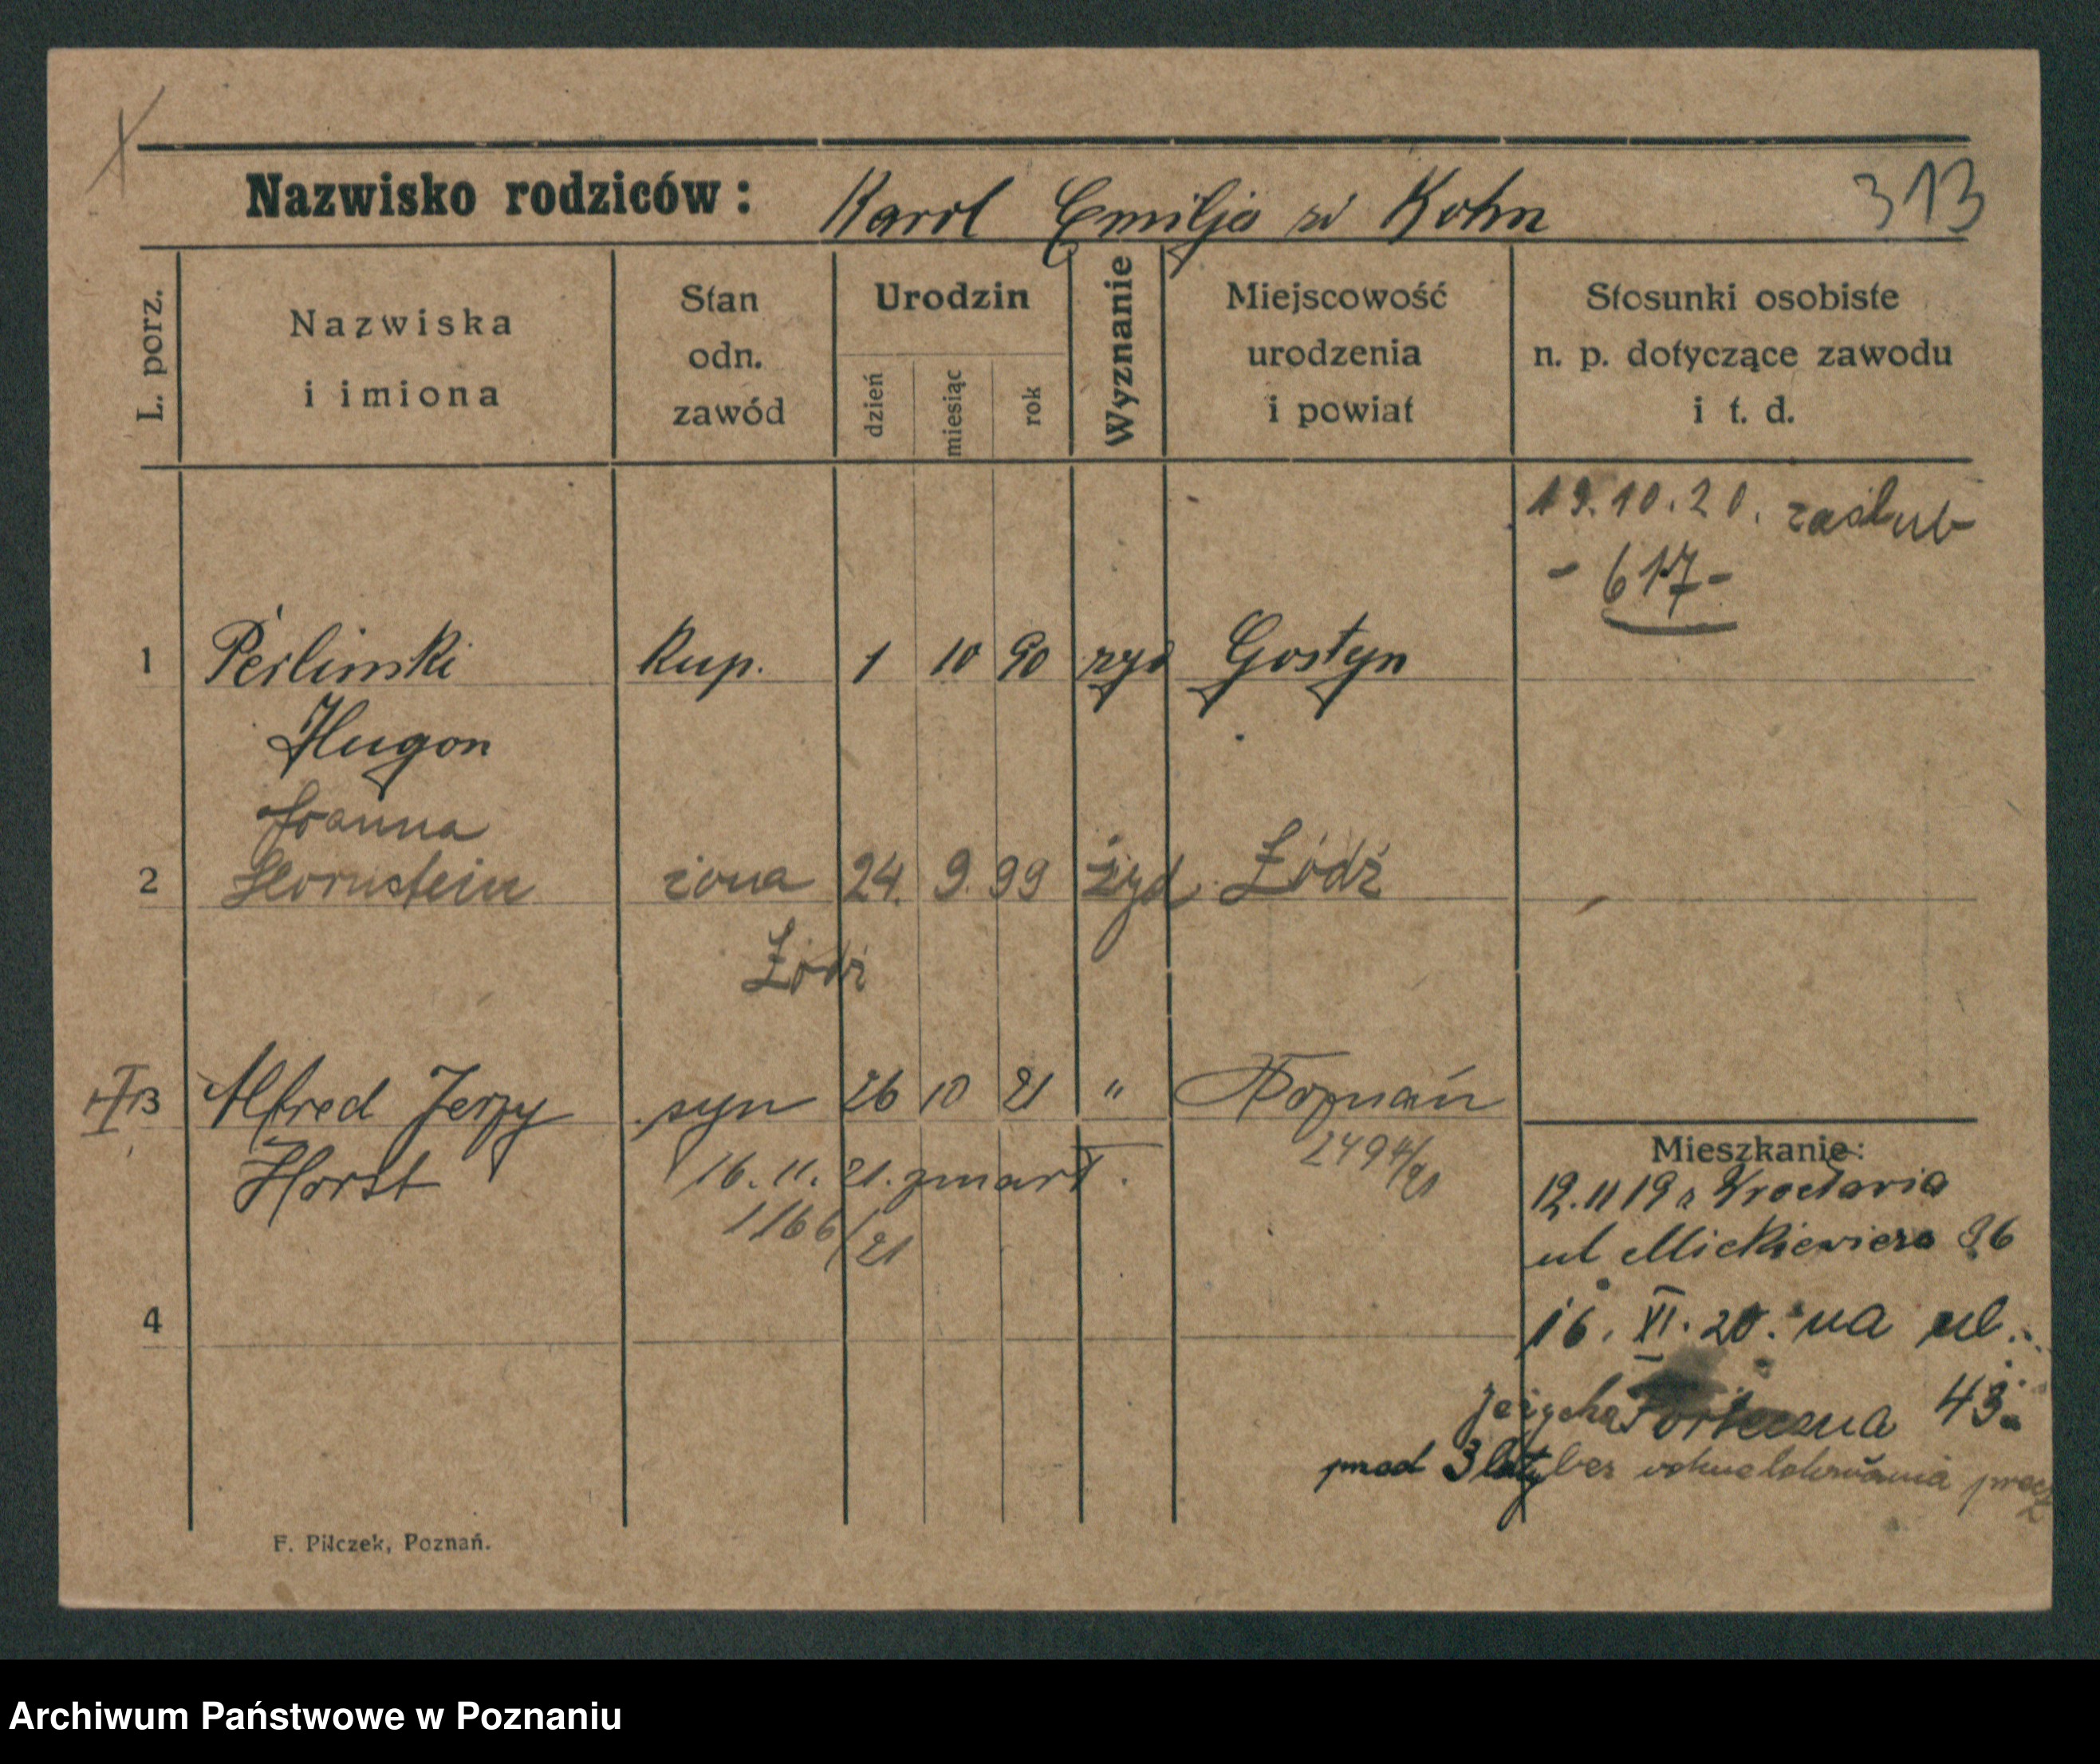 Nazwisko rodziców: Karol Emilja z Kohn 313
L. porz.
Nazwiska i imiona
Stan odn. zawód
Urodzin
dzień miesiąc rok
Wyznanie
Miejscowość urodzenia i powiat
Stosunki osobiste n. p. dotyczące zawodu i t. d.
19.10.20. zaślub
- 617 -
1 Perlinski kup. 1 10 90 zyd Gostyn
Hugon
Joanna
2 Hornstein żona 24. 9. 99 żyd Łódź
Łódź
3 Alfred Jerzy syn 26 10 21 " Poznań
Horst 16. 11. 21. zmarł. 2494/21
1166/21
Mieszkanie:
12.11 19 z Wrocławia
ul Mickiewicza 36
4
16. XI. 20. na ul.
Forteczna 43.
przed 3 laty bez
F. Pilczek, Poznań.
Archiwum Państwowe w Poznaniu